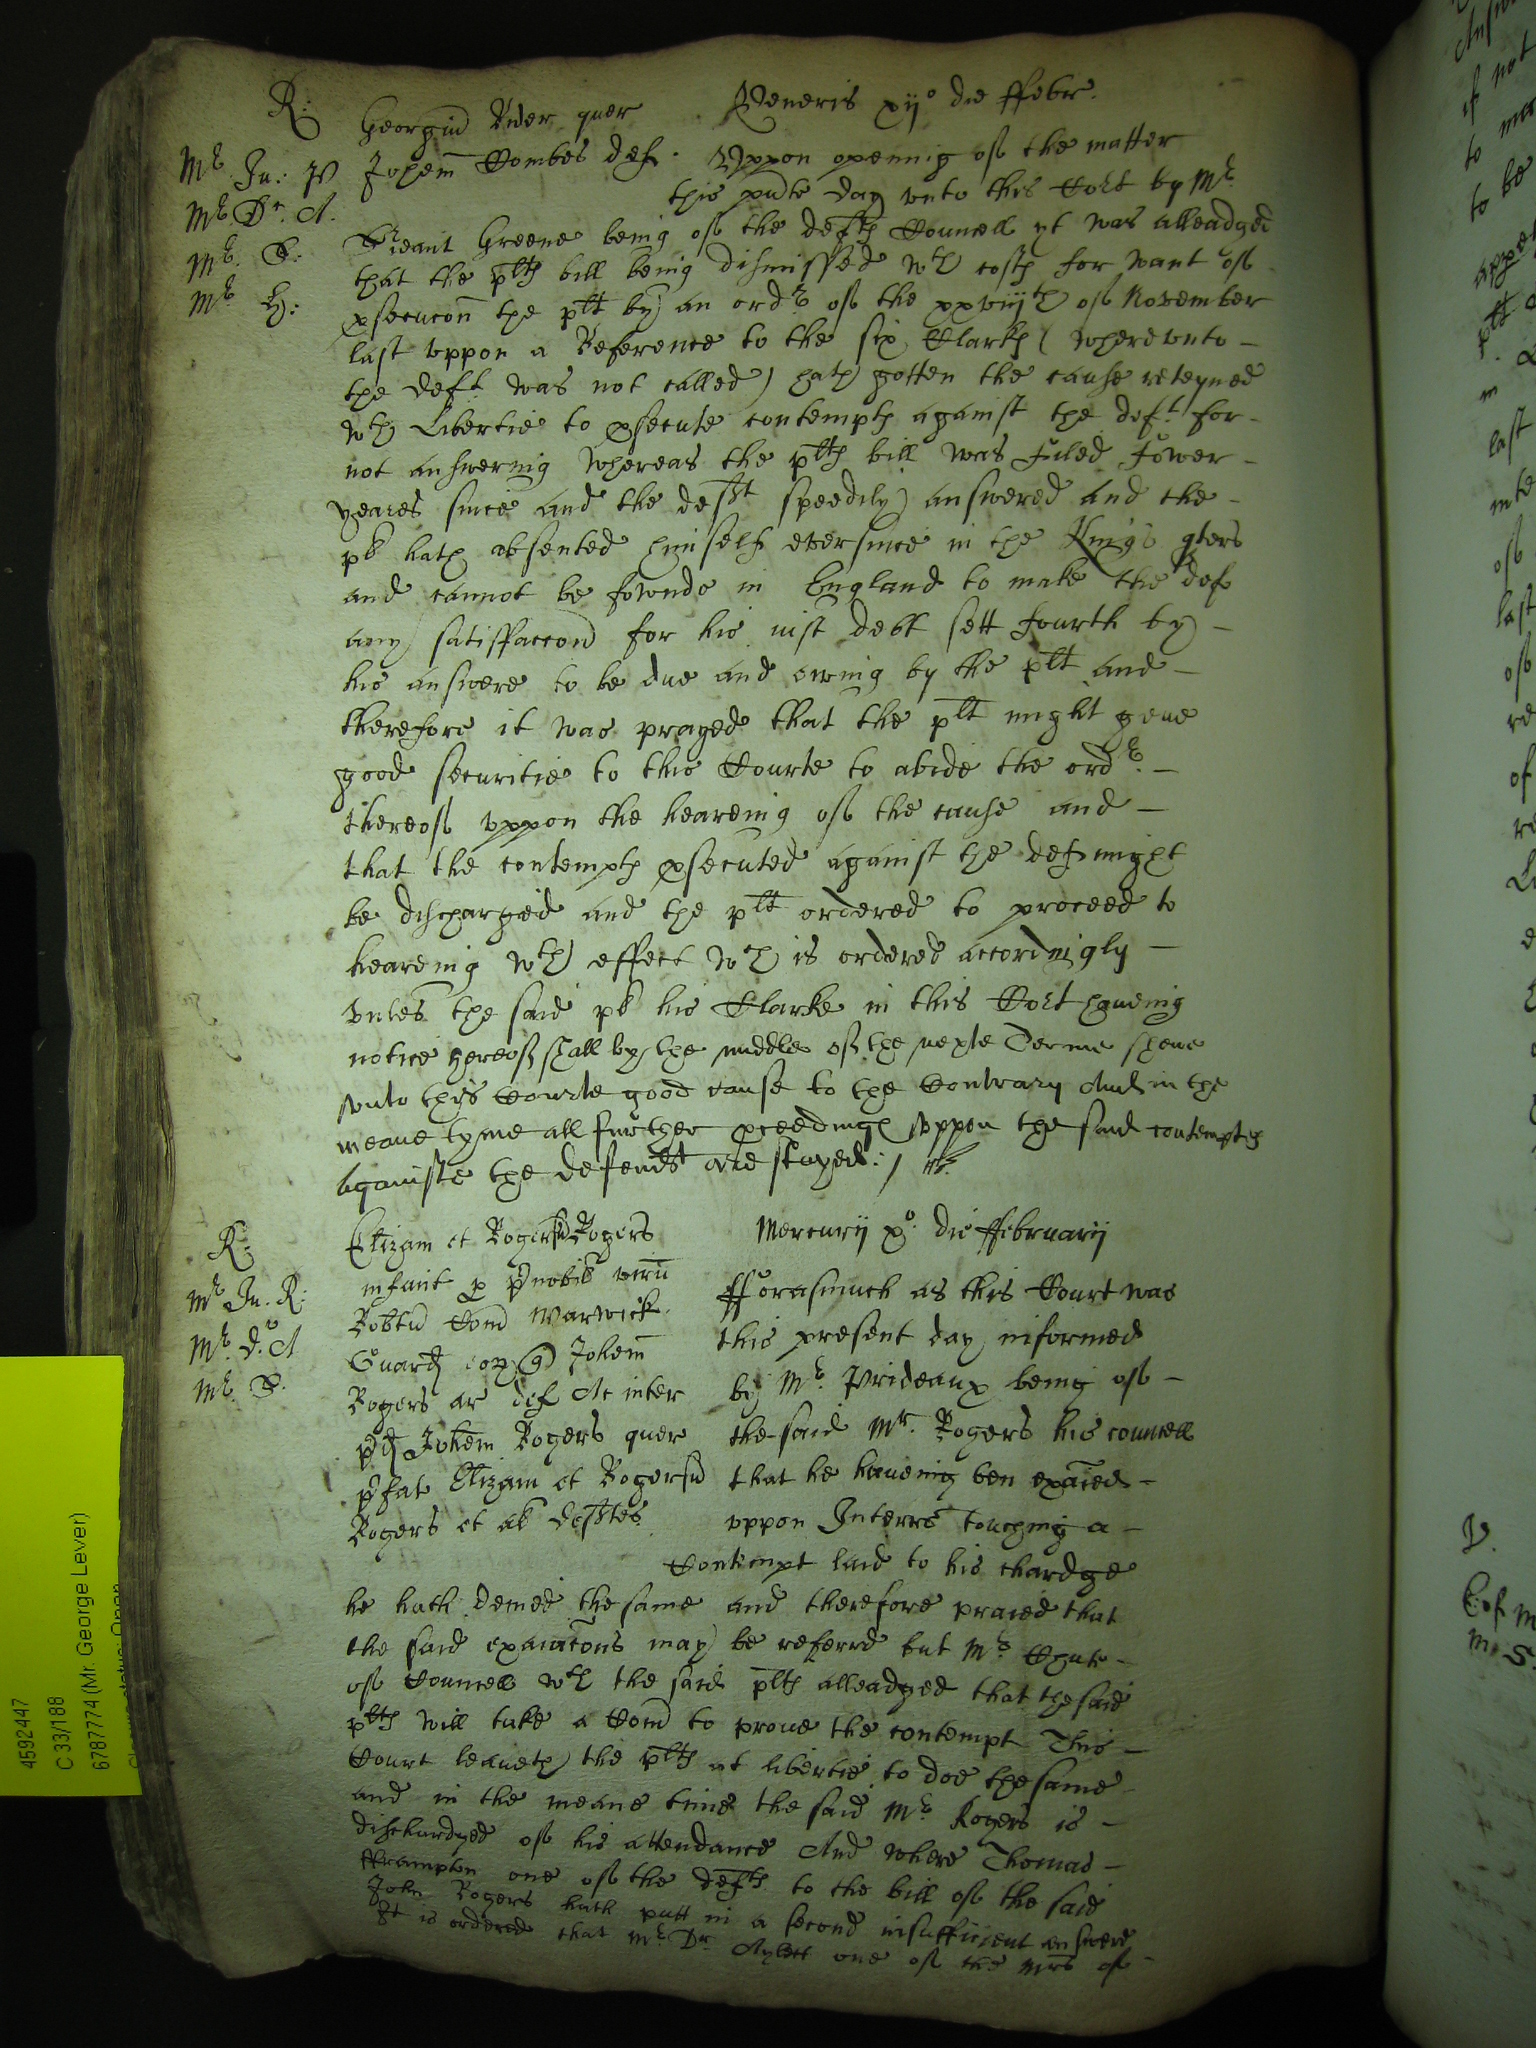 R:
Georgiu Rider quer
Veneris xij° die ffebr.
Mr Ju: P
Johem Combes def.
Uppon opening of the matter
Mr Dr. A.
this pnte day unto this Cort by Mr
Mr. S:
Sreant Greene being of the defts Councell yt was alleadged
Mr H:
that the plts bill being dismissed wth costs for want of
psecucon the plt by an ordr of the xxviijth of November
last uppon a Reference to the six Clarks (whereunto
the deft was not called) hath gotten the cause reteyned
wth Libertie to psecute contempts against the deft for
not answering whereas the plts bill was fuled fower
yeares since and the deft speedily answered and the
pl hath absented himself ever since in the Kings
and cannot be fownde in England to make the def
any satisfaccon for his iust debt sett fourth by
his answere to be due and owing by the plt and
therefore it was prayed that the plt might geue
good securitie to this Courte to abide the ordr
thereof uppon the heareing of the cause and
that the contempts psecuted against the def might
be discharged and the plt ordered to proceed to
heareing wth effect wch is ordered accordingly
unles the said pl his Clarke in this Cort haueing
notice hereof shall by the middle of the nexte Terme shewe
unto this Courte good cause to the Contrary And in the
meane tyme all further pceedings uppon the said contempts
againste the defendt are stayed: /
R:
Elizam et Rogers
Mercurij x° die ffebruarij
infant p pnobil viru
Mr Ju. R:
Robtu Com Warwick
fforasmuch as this Court was
Mr. D. A
Guard Johem
this present day informed
Mr. S.
Rogers ar def Ac inter
by Mr. Prideaux being of
pd Johem Rogers quer
the said Mr. Rogers his councell
pfat Elizam et
that he haueing ben exaied
Rogers et al deftes
uppon Interrs touching a
Contempt laid to his chardge
he hath denied the same and therefore praied that
the said exaiacons may be referrd but Mr Chute
of Councell wth the said plts alleadged that the said
plts will take a Com to proue the contempt This
Court leaueth the plts at libertie to doe the same
and in the meane time the said Mr Rogers is
dischardged of his attendance And where Thomas
fframpton one of the defts to the bill of the said
John Rogers hath putt in a second insufficient answere
It is ordered that Mr Dr. Aylett one of the Mrs of
4592447
C 33/188
6787774 (Mr. George Lever)
if not
to be
last
of
last
of
of